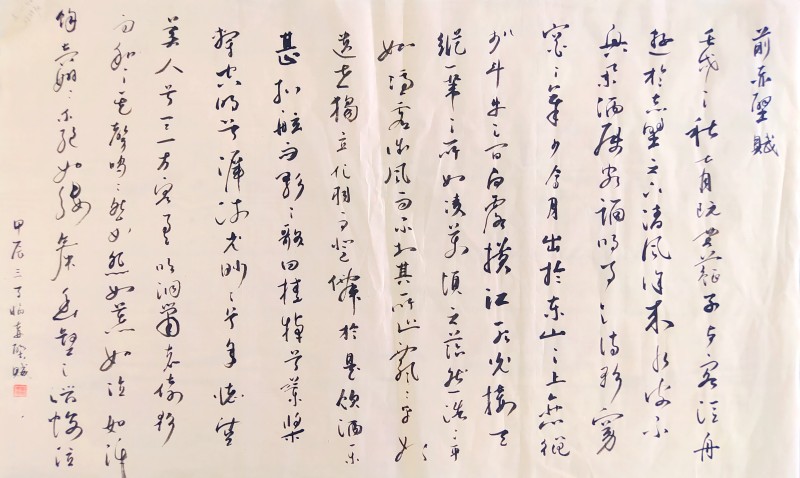 前赤壁賦
壬戌之秋七月既望蘇子與客泛舟
遊於赤壁之下清風徐來水波不
興舉酒屬客誦明月之詩歌窈
窕之章少焉月出於東山之上徘徊
於斗牛之間白露橫江水光接天
縱一葦之所如凌萬頃之茫然浩浩乎
如馮虛御風而不知其所止飄飄乎如
遺世獨立化羽而登僊於是飲酒樂
甚扣舷而歌之歌曰桂棹兮蘭槳
擊空明兮泝流光渺渺兮余懷望
美人兮天一方客有吹洞簫者倚歌
而和之其聲嗚嗚然如怨如慕如泣如訴
餘音嫋嫋不絕如縷舞幽壑之潛蛟泣
甲辰三丁